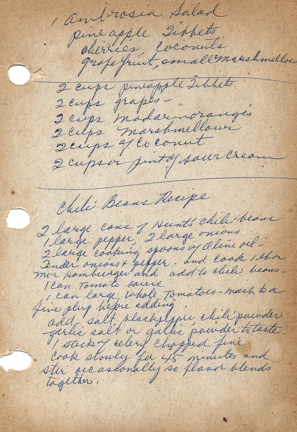 1 Ambrosia Salad
pineapple Tibbets
cherries, Coconuts
grapefruit, small marshmellow
2 cups pineapple Tibbets
2 cups grapes -
2 cups madarin oranges
2 cups Marshmellows
2 cups of Coconut
2 cups or pint of sour cream
Chili Beans Recipe
2 large cans of Hunts chili bean
1 large pepper, 2 large onions
2 large cooking spoons of Olive oil -
onions & pepper - and cook 1 hor
Hamburger and add to chili beans
1 can Tomato sauce
1 can large whole Tomatoes - mash to a
fine before adding -
add salt, black pepper chili powder
garlic salt or garlic powder to taste
1 stick of celery chopped fine
Cook slowly for 45 minutes and
stir occasionally so flavor blends
together.